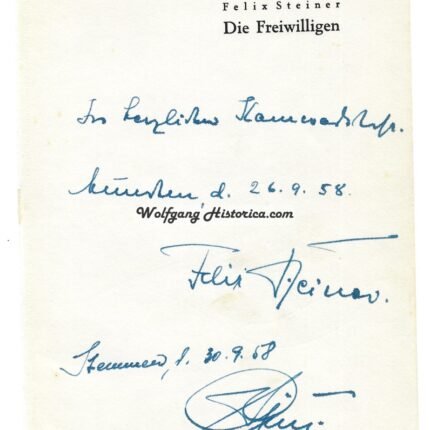 Felix Steiner
Die Freiwilligen
In herzlicher Kameradschaft.
München, d. 26.9.58.
Wolfgang Historica.com
Felix Steiner.
d. 30.9.68